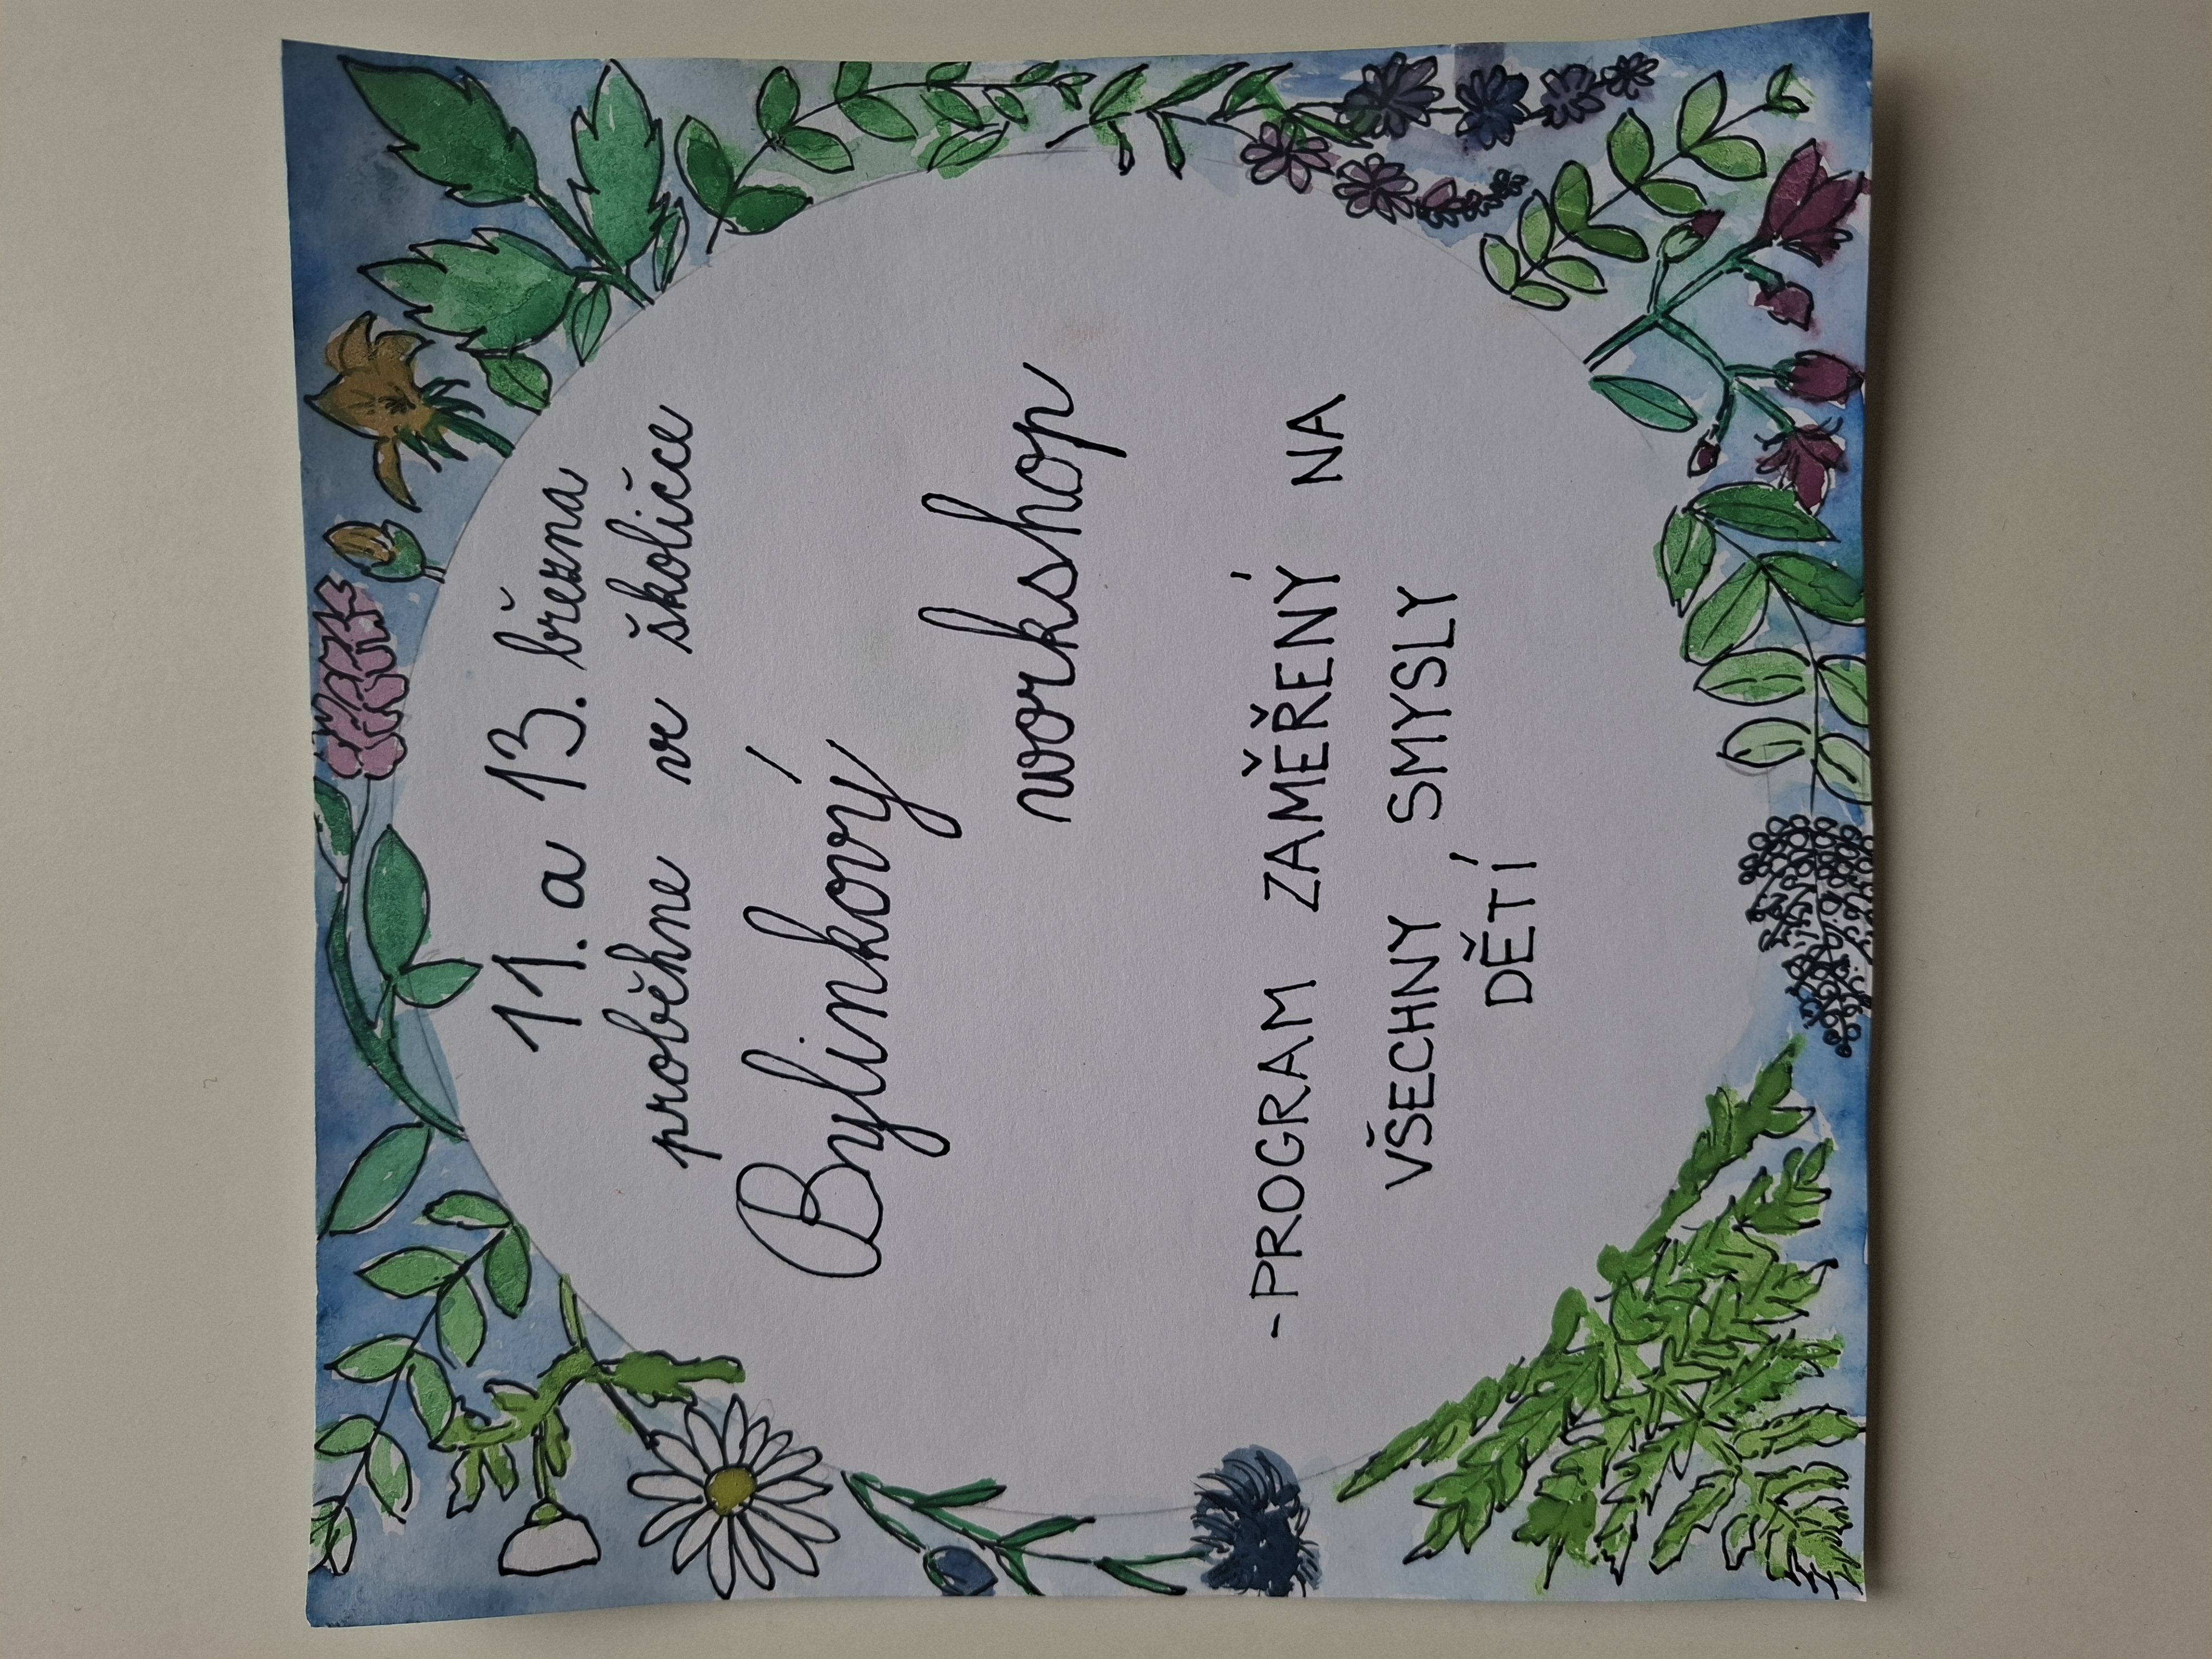 11. a 13. března
proběhne ve školičce
Bylinkový
workshop
-PROGRAM ZAMĚŘENÝ NA
VŠECHNY SMYSLY
DĚTÍ